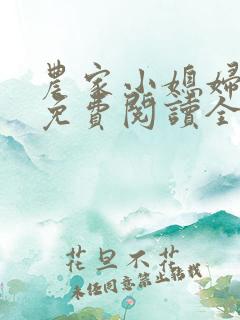 農家小媳婦
免費閱讀全
花旦不花
未經同意禁止轉載